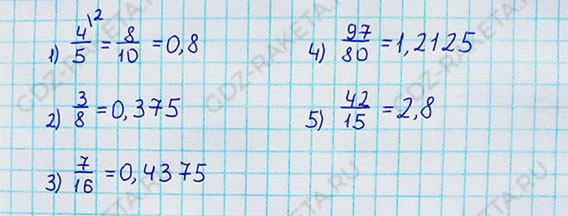 1) 4\2/5 = 8/10 = 0,8
2) 3/8 = 0,375
3) 7/16 = 0,4375
4) 97/80 = 1,2125
5) 42/15 = 2,8
GDZ-RAKETA.RU